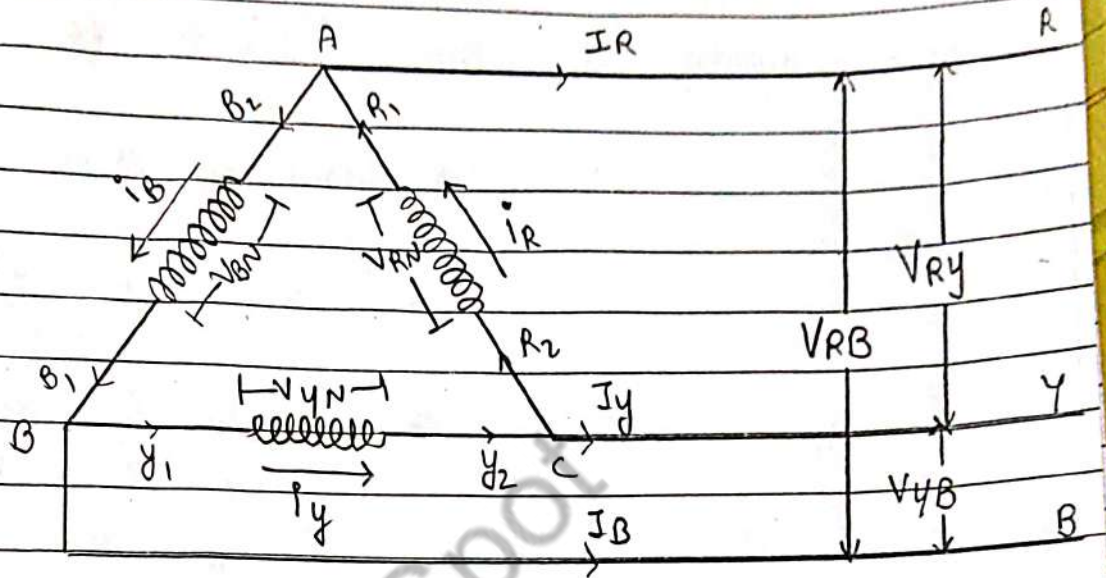 A
IR
R
B2
R1
iB
iR
VBN
VRN
VRy
VRB
R2
B1
VyN
Iy
Y
B
y1
y2
C
iy
VyB
IB
B
pot